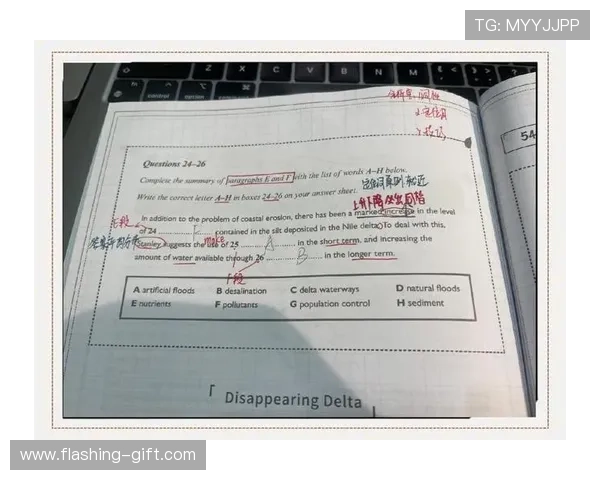 TG: MYYJJPP
54
Questions 24–26
Complete the summary of paragraphs E and F with the list of words A–H below.
Write the correct letter A–H in boxes 24–26 on your answer sheet.
In addition to the problem of coastal erosion, there has been a marked increase in the level
E段
of 24 contained in the silt deposited in the Nile delta. To deal with this,
make
Stanley suggests the use of 25 A in the short term, and increasing the
amount of water available through 26 B in the longer term.
F段
A artificial floods B desalination C delta waterways D natural floods
E nutrients F pollutants G population control H sediment
「 Disappearing Delta 」
www.flashing-gift.com